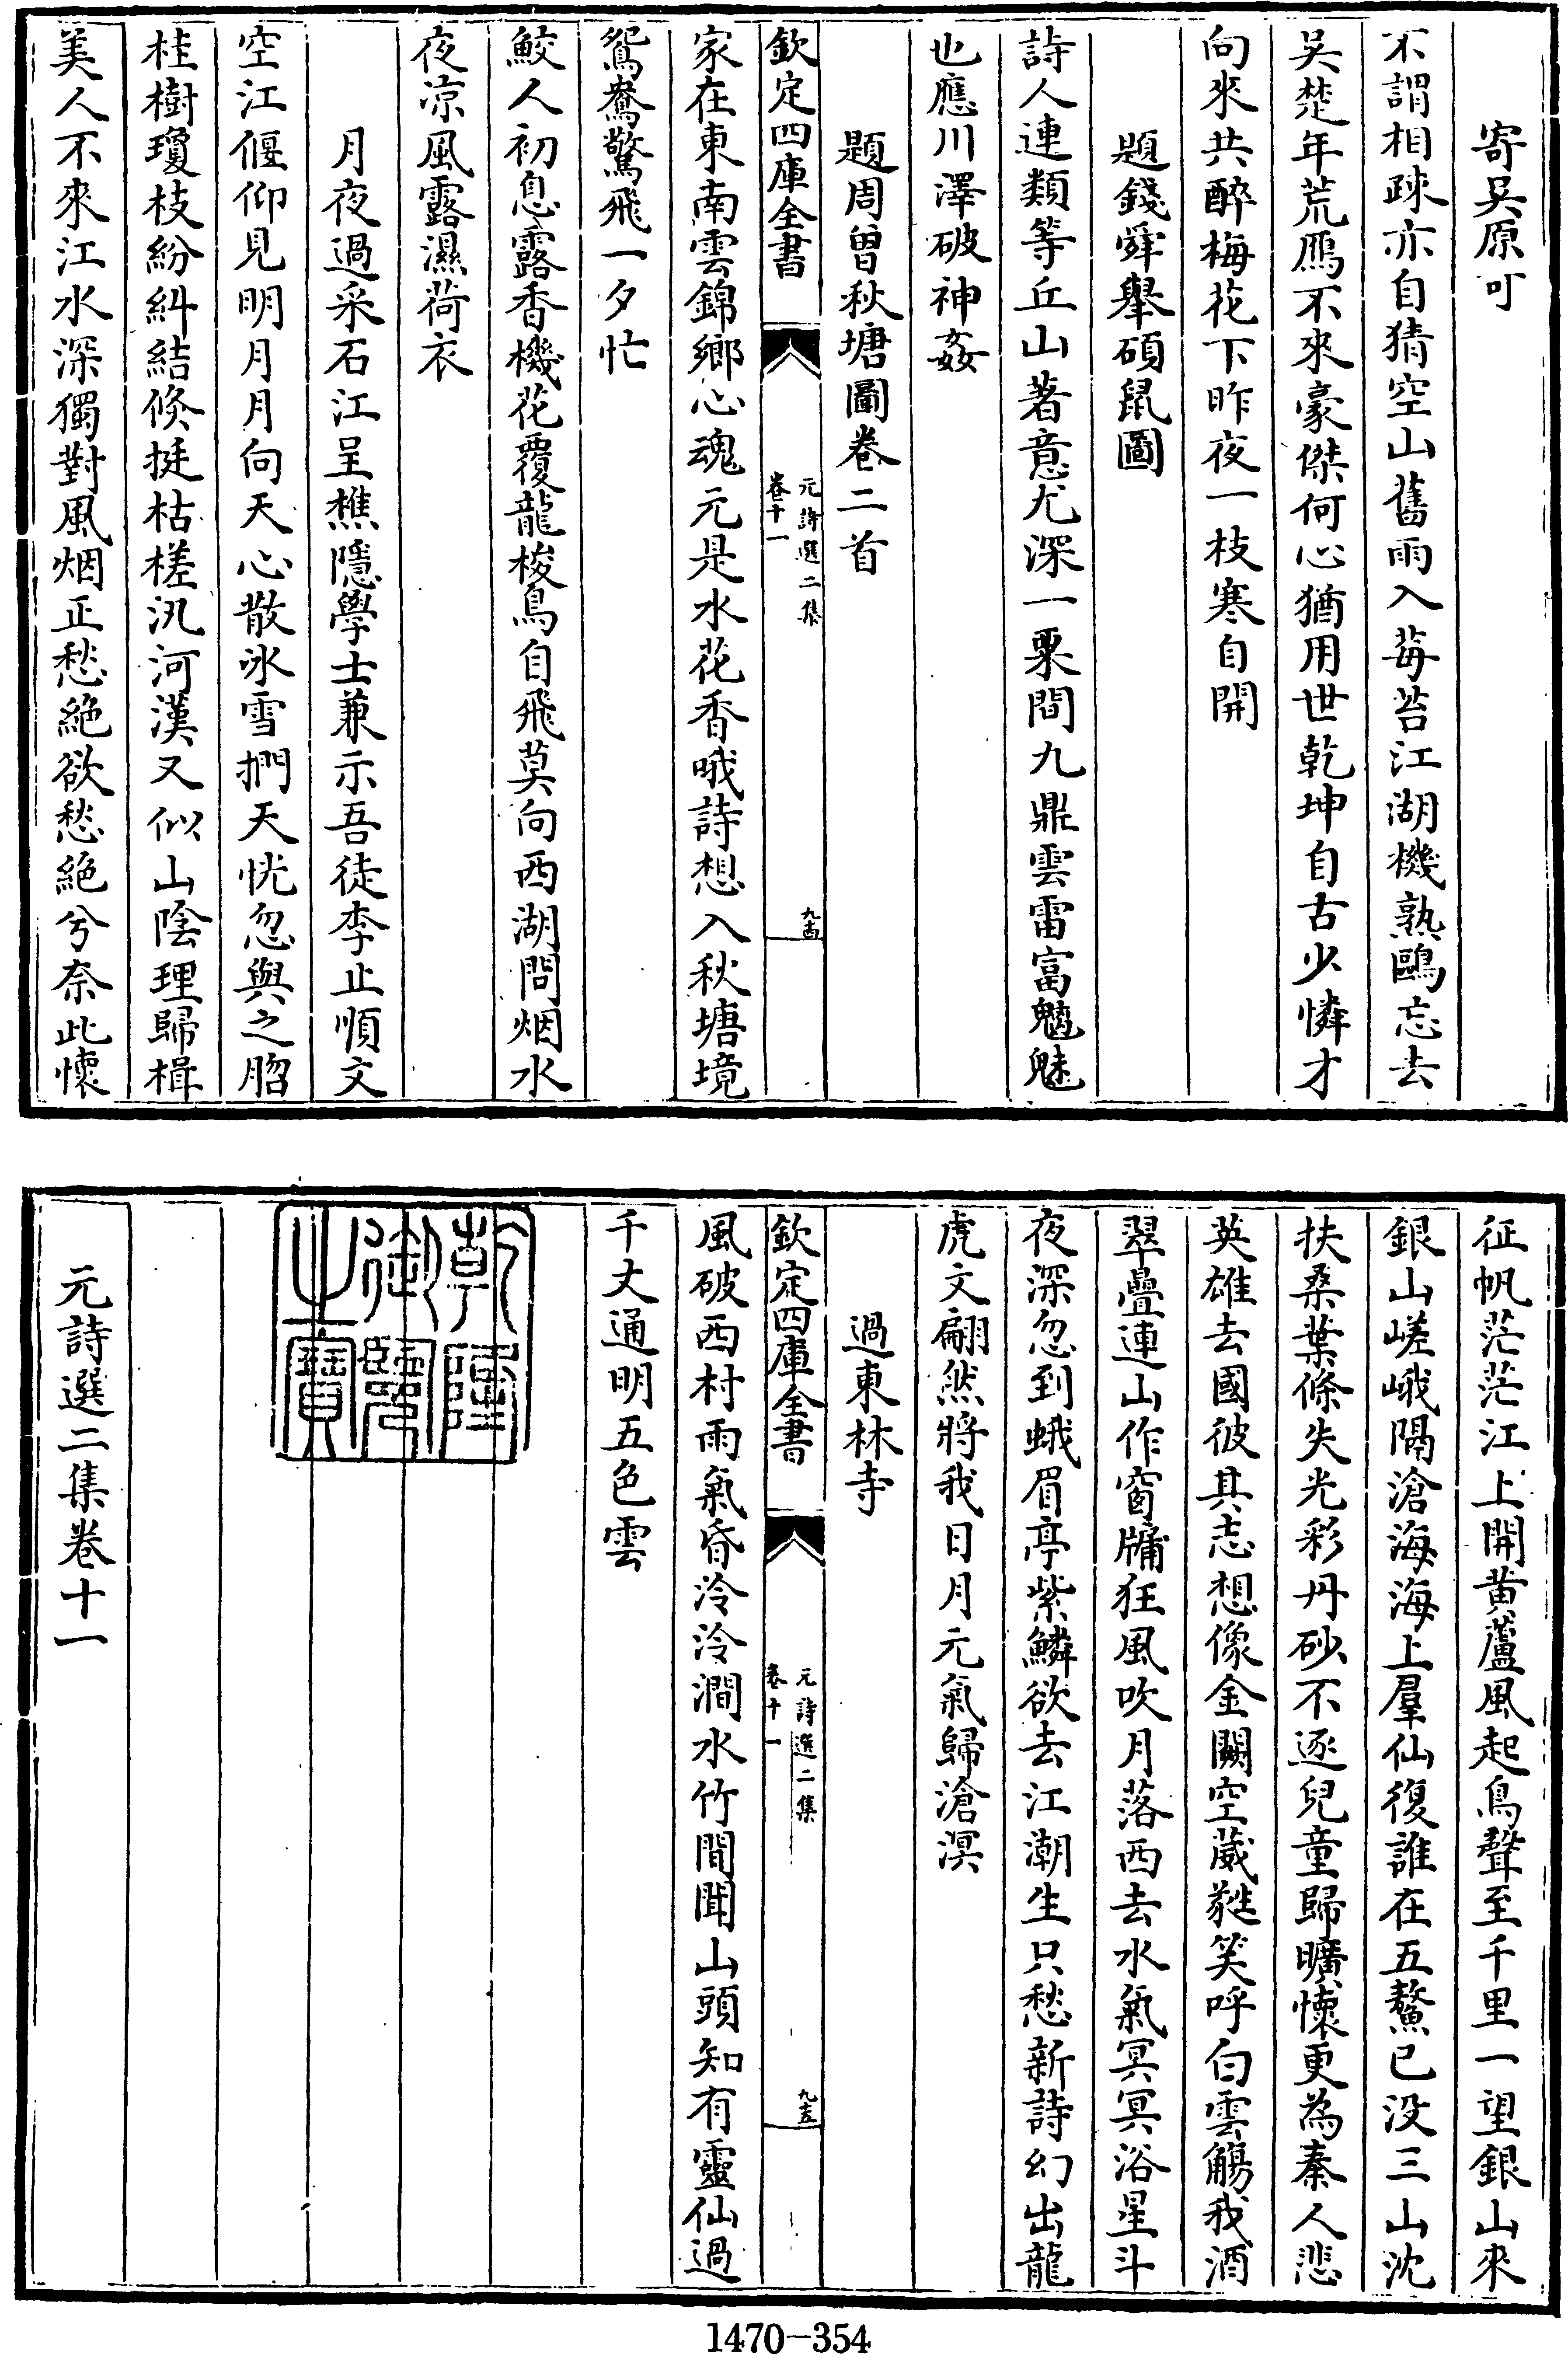 寄吳原可
不謂相疎亦自猜空山舊雨入莓苔江湖機熟鷗忘去
吳楚年荒鴈不來豪傑何心猶用世乾坤自古少憐才
向來共醉梅花下昨夜一枝寒自開
題錢舜舉碩鼠圖
詩人連類等丘山著意尤深一粟間九鼎雲雷富魑魅
也應川澤破神姦
題周曾秋塘圖卷二首
欽定四庫全書
元詩選二集
卷十一
九十四
家在東南雲錦鄉心魂元是水花香哦詩想入秋塘境
鴛鴦驚飛一夕忙
鮫人初息露香機花覆龍梭鳥自飛莫向西湖問烟水
夜凉風露濕荷衣
月夜過采石江呈樵隱學士兼示吾徒李止順文
空江偃仰見明月月向天心散冰雪捫天恍忽與之䏚
桂樹瓊枝紛糾結倐挺枯槎汎河漢又似山陰理歸楫
美人不來江水深獨對風烟正愁絶欲愁絶兮奈此懷
征帆茫茫江上開黄蘆風起鳥聲至千里一望銀山來
銀山嵯峨隔滄海海上羣仙復誰在五鰲已没三山沈
扶桑葉條失光彩丹砂不逐兒童歸曠懷更為秦人悲
英雄去國彼其志想像金闕空葳蕤笑呼白雲觴我酒
翠疊連山作窗牗狂風吹月落西去水氣冥冥浴星斗
夜深忽到蛾眉亭紫鱗欲去江潮生只愁新詩幻出龍
虎文翩然將我日月元氣歸滄溟
過東林寺
欽定四庫全書
元詩選二集
卷十一
九十五
風破西村雨氣昏泠泠澗水竹間聞山頭知有靈仙過
千丈通明五色雲
乾隆
御覽
之寶
元詩選二集卷十一
1470—354